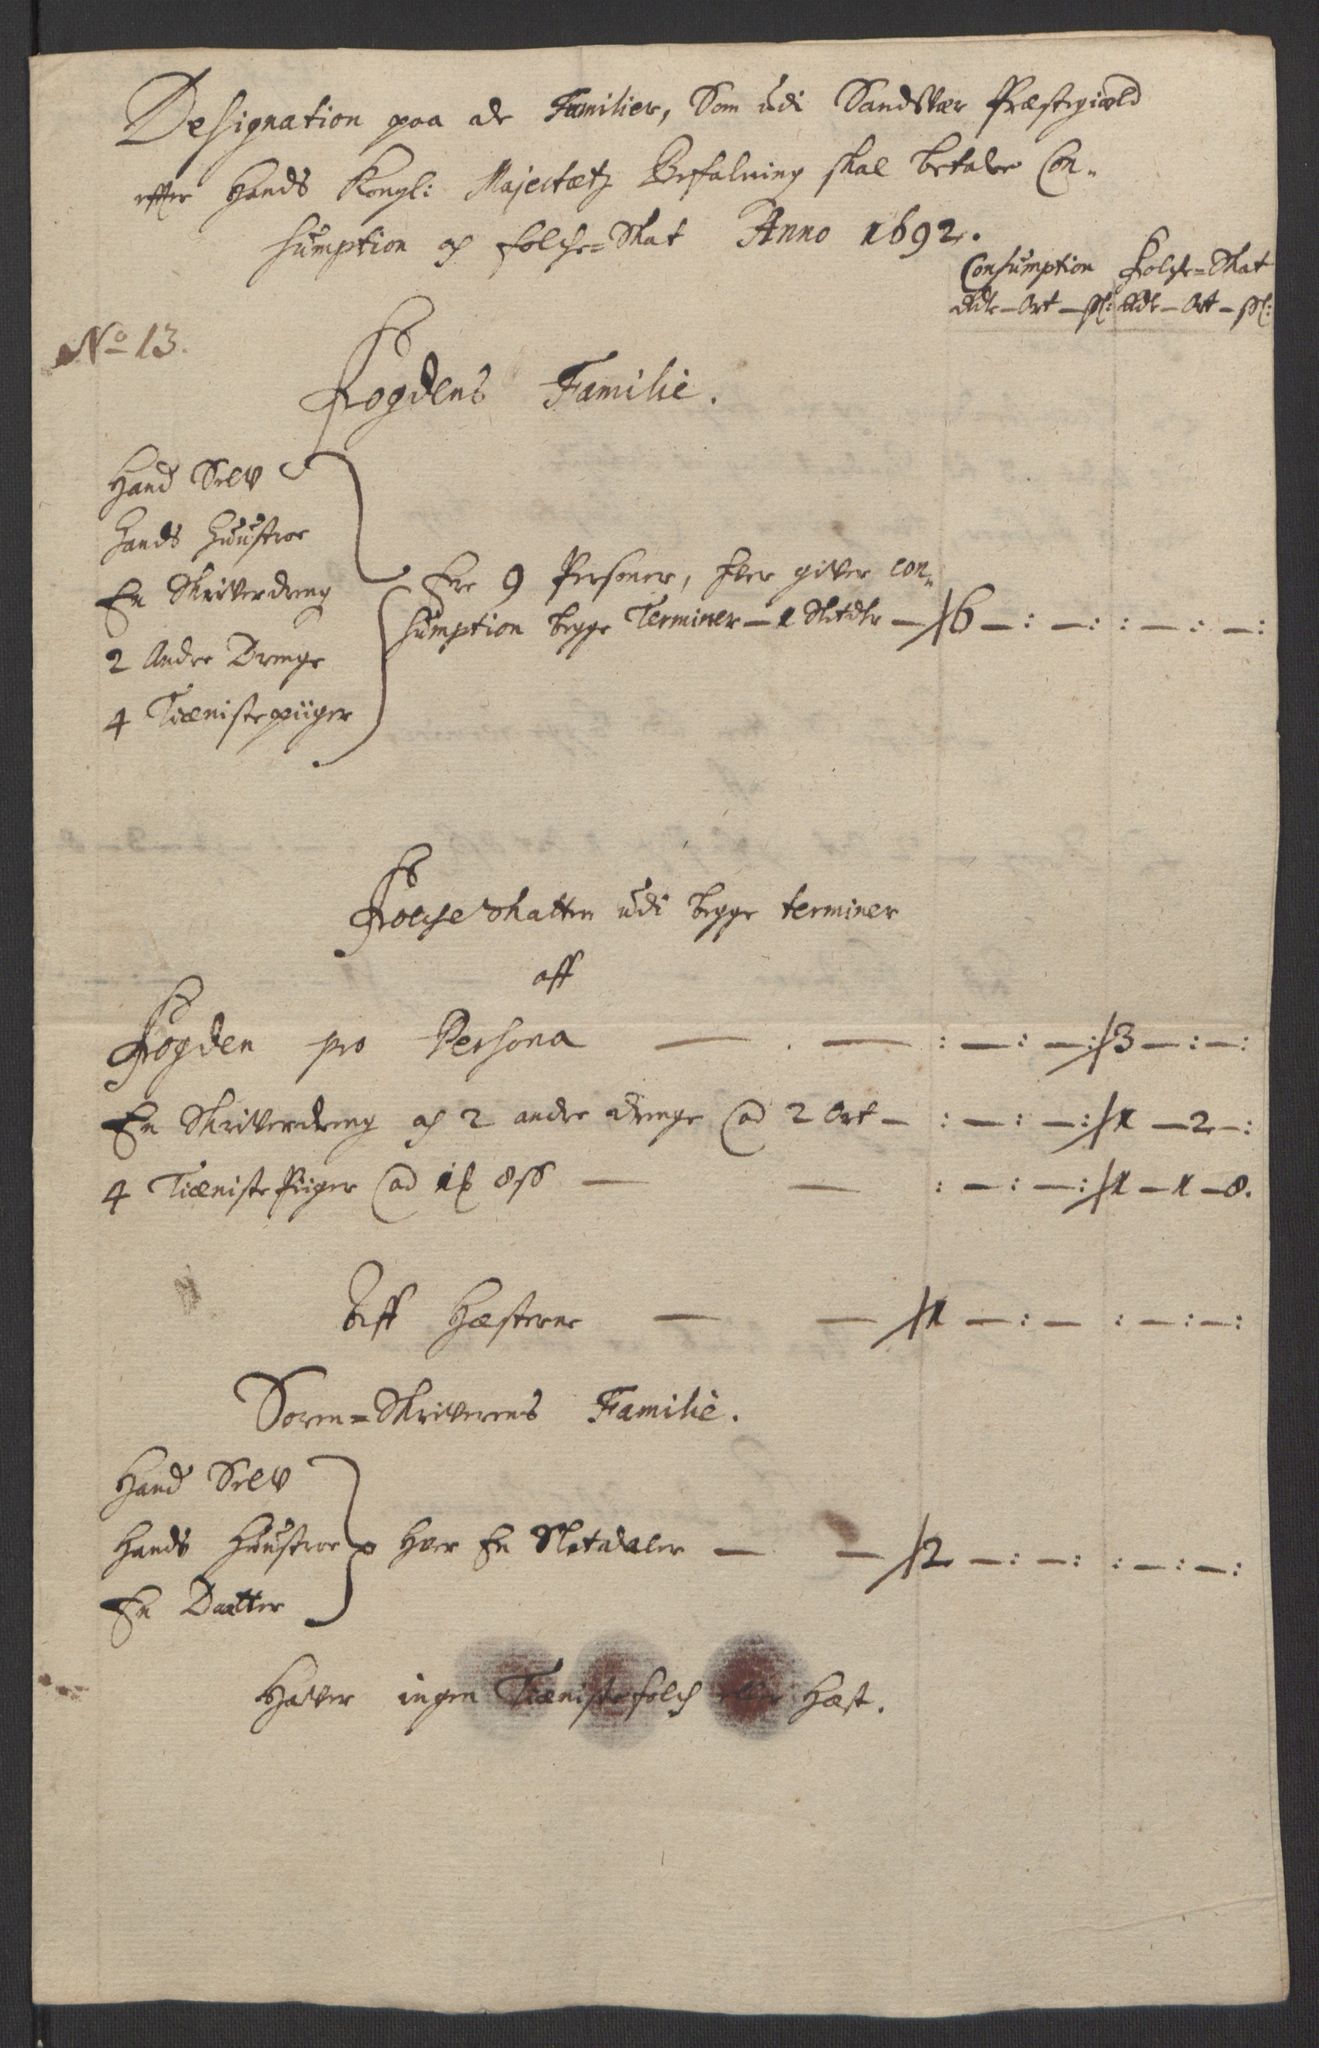 Designation paa de Familier, Som udi Sandsvær Præstegiæld
effter Hands Kongl: Majestætz Befalning skal betale Con-
sumption og folche-Skat Anno 1692.
Consumption Folche-Skat
Rdlr - Ort - ſſ: Rdlr - Ort - ſſ:
No 13.
Fogdens Familie.
Hand Selv
Hands Huustroe
En Skriverdreng
2 Andre Drenge
4 Tienistepiiger
Ere 9 Personer, hver giver con-
sumption begge Terminer - 1 Sletdlr - 6 - : - : : - : - :
Folcheskatten udi begge terminer
aff
Fogden pro Persona - . - : - : - : 3 - : - :
En Skriverdreng og 2 andre drenge @ 2 Ort - : - : - : 1 - 2 - :
4 Tieniste Piiger @ 1 8 ſſ - - : - : - : 1 - 1 - 8.
Aff Hæsterne - - 1 - : - : - : - :
Soren-Skriverens Familie.
Hand Selv
Hands Huustroe
En Daatter
Hver En Sletdaler - - 2 - : - : : - : - :
Haver ingen Tienistefolch eller Hæst.